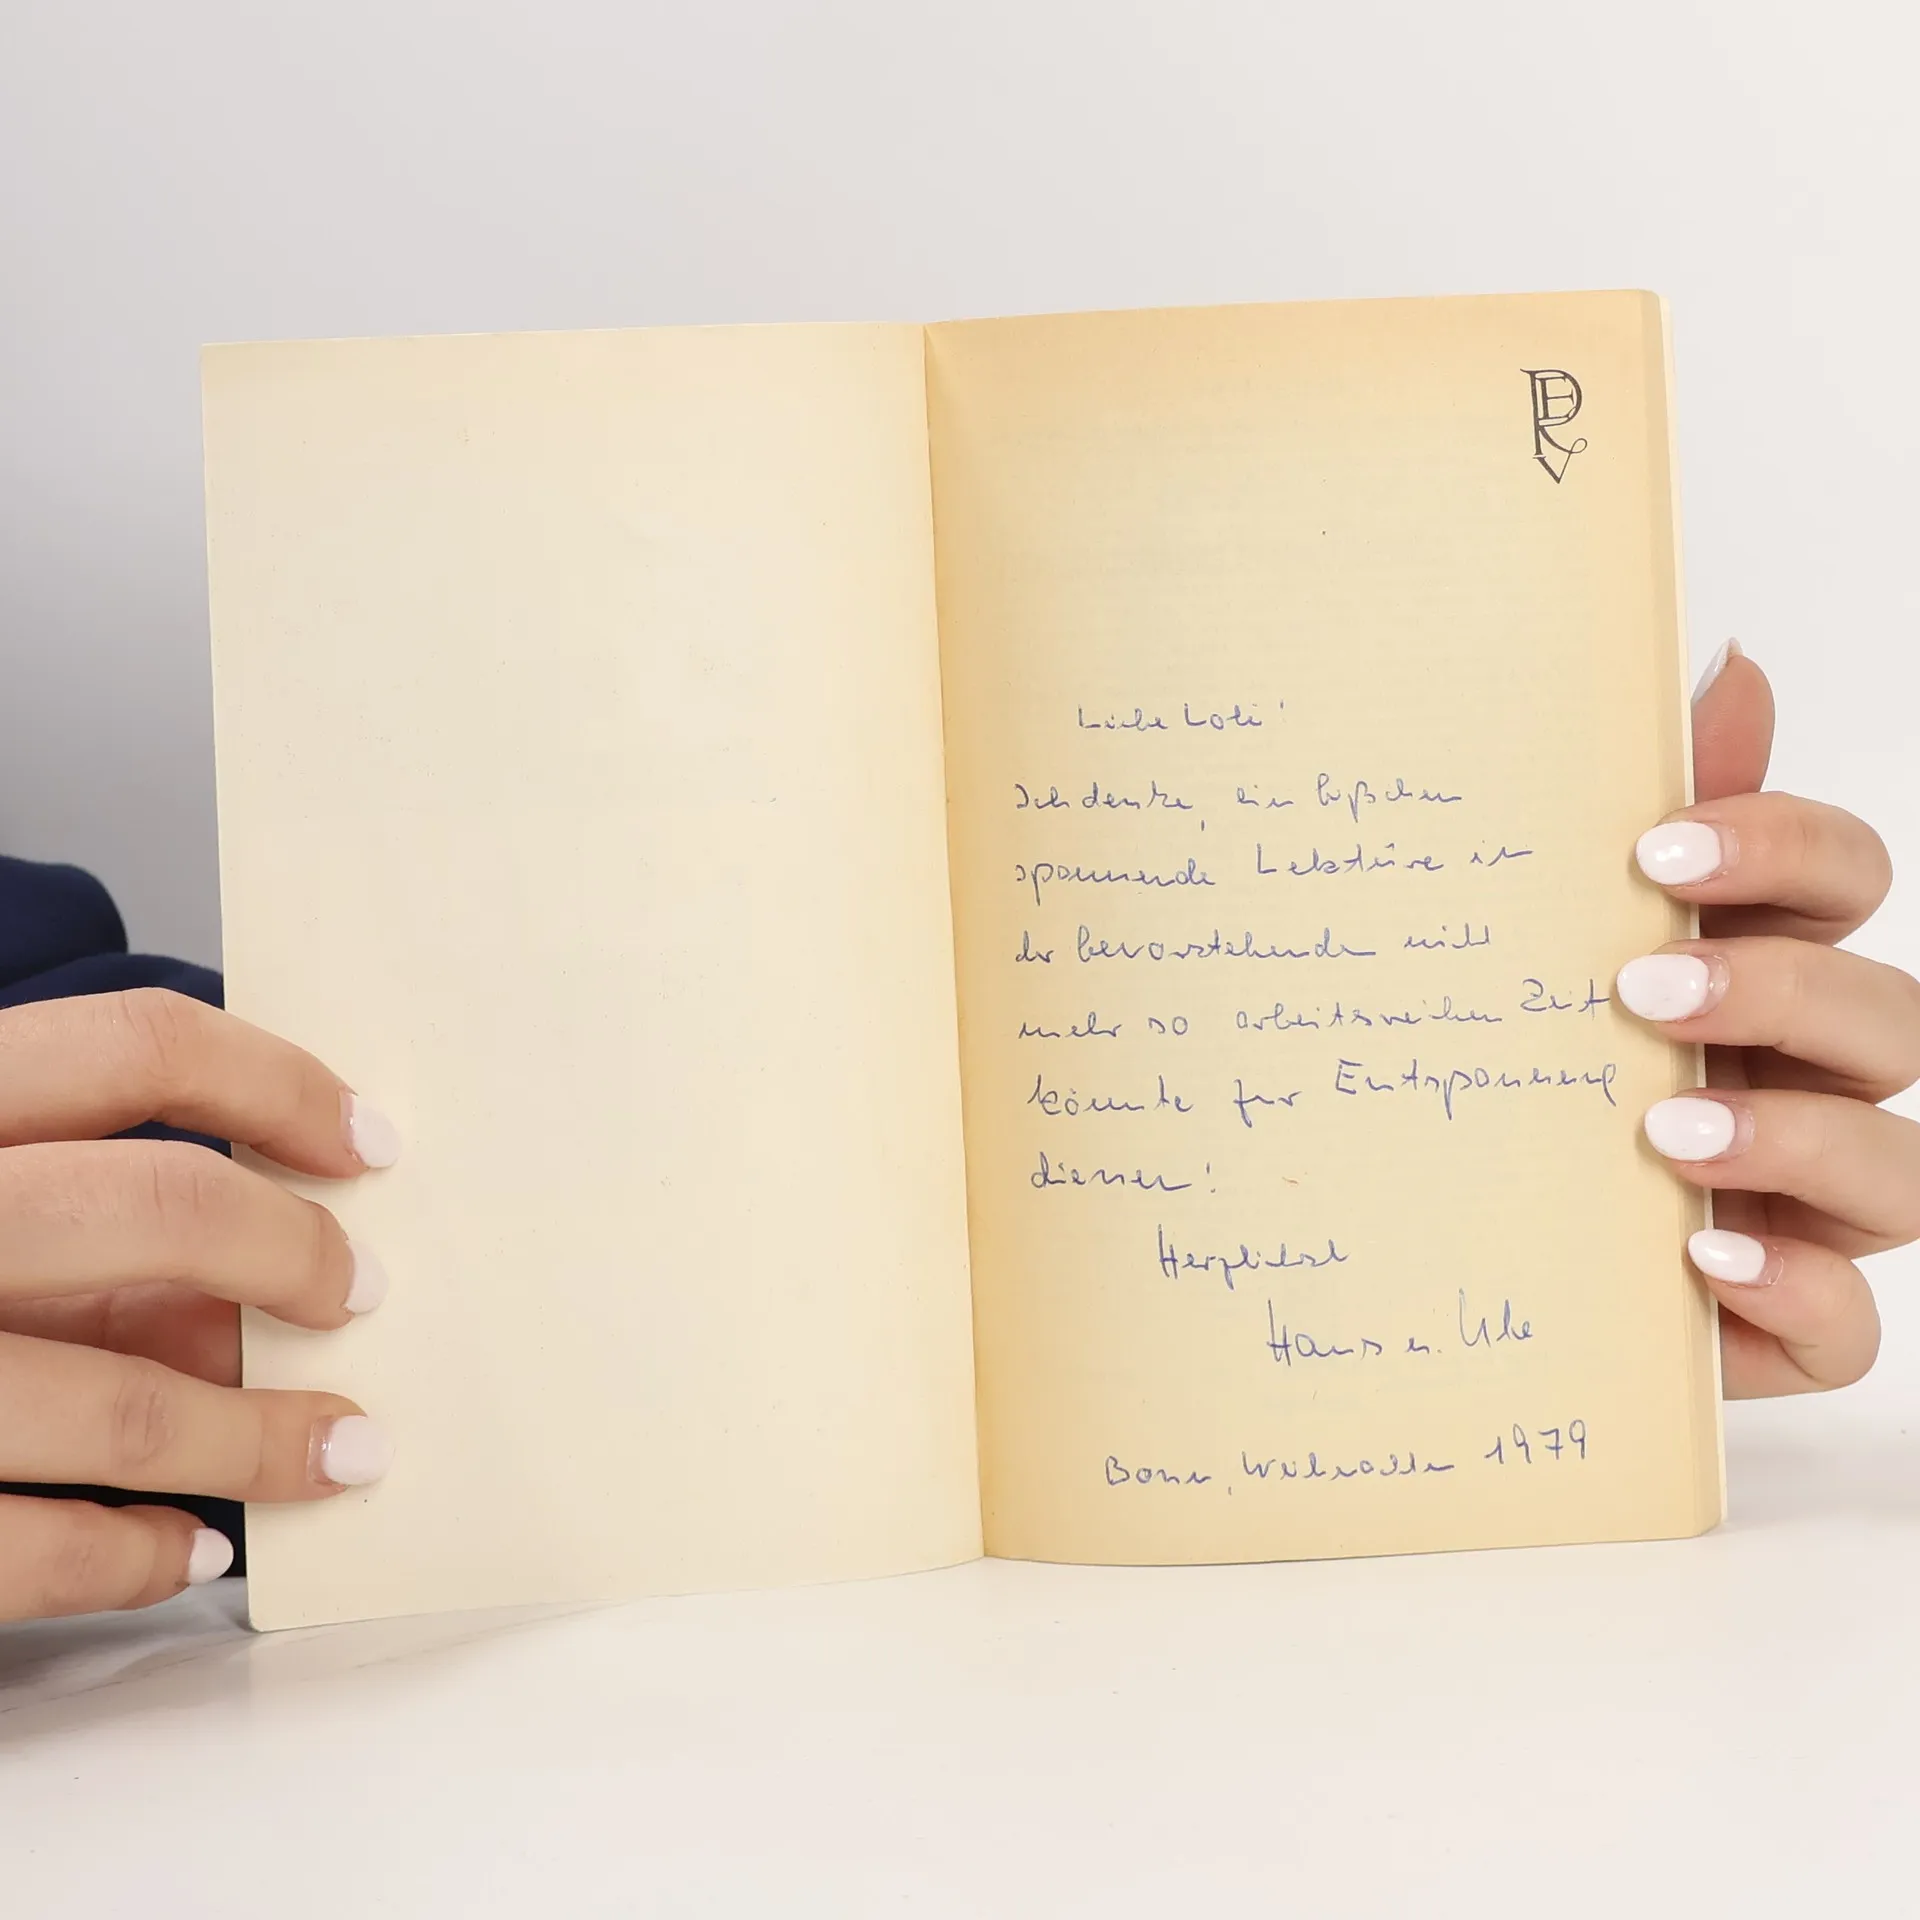 PEV
Liebe Loti!
Ich denke, ein bißchen
spannende Lektüre in
der bevorstehenden nicht
mehr so arbeitsreichen Zeit
könnte zur Entspannung
dienen!
Herzlichst
Hans u. Ute
Bonn, Weihnachten 1979